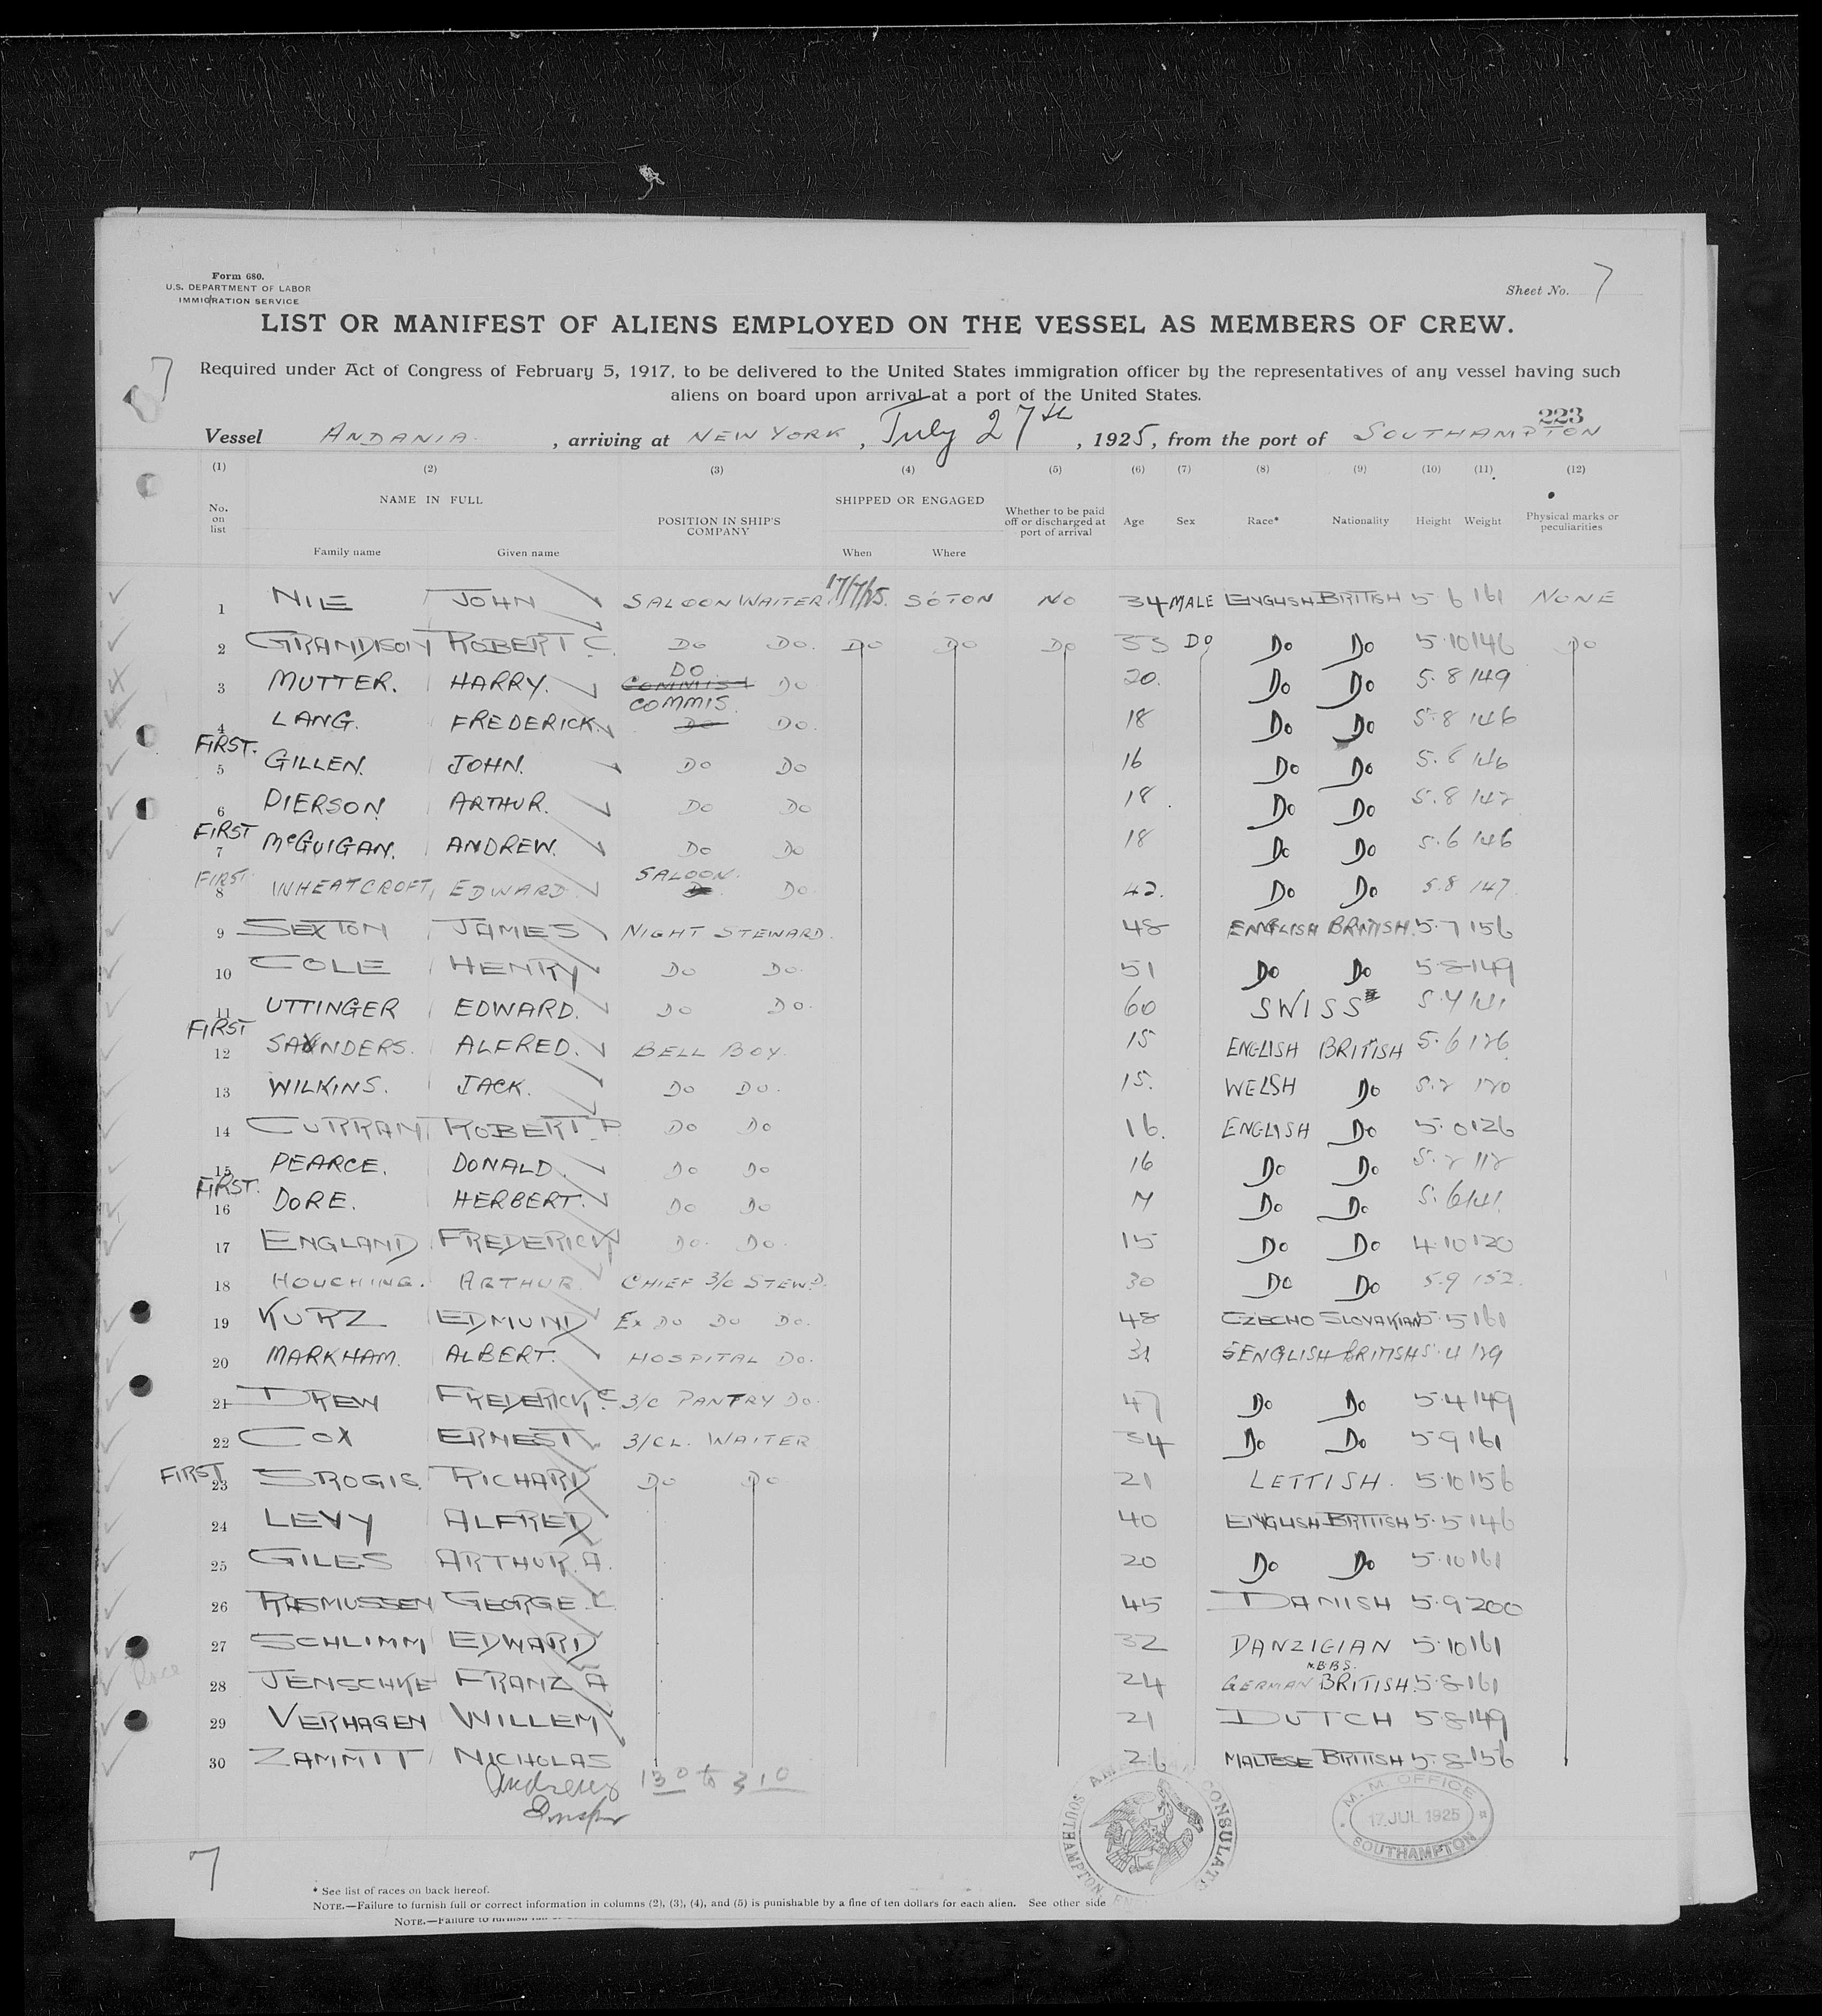 Form 680.
U.S. DEPARTMENT OF LABOR
IMMIGRATION SERVICE
Sheet No. 7
LIST OR MANIFEST OF ALIENS EMPLOYED ON THE VESSEL AS MEMBERS OF CREW.
7
Required under Act of Congress of February 5, 1917, to be delivered to the United States immigration officer by the representatives of any vessel having such
aliens on board upon arrival at a port of the United States.
223
Vessel ANDANIA , arriving at NEW YORK , July 27th , 1925, from the port of SOUTHAMPTON
(1) (2) (3) (4) (5) (6) (7) (8) (9) (10) (11) (12)
No. on list NAME IN FULL Family name Given name POSITION IN SHIP'S COMPANY SHIPPED OR ENGAGED When Where Whether to be paid off or discharged at port of arrival Age Sex Race* Nationality Height Weight Physical marks or peculiarities
1 NILE JOHN SALOON WAITER 17/7/25. SOTON NO 34 MALE ENGLISH BRITISH 5 6 161 NONE
2 GRANDISON ROBERT C. DO DO. DO DO DO 33 DO DO DO 5.10 146 DO
3 MUTTER. HARRY. DO COMMIS DO 20. DO DO 5.8 149
4 LANG. FREDERICK. COMMIS. DO DO. 18 DO DO 5.8 146
FIRST. 5 GILLEN. JOHN. DO DO 16 DO DO 5.6 146
6 PIERSON ARTHUR. DO DO 18. DO DO 5.8 142
FIRST 7 McGUIGAN. ANDREW. DO DO 18 DO DO 5.6 146
FIRST 8 WHEATCROFT, EDWARD SALOON. DO 42. DO DO 5.8 147
9 SEXTON JAMES NIGHT STEWARD. 48 ENGLISH BRITISH. 5.7 156
10 COLE HENRY DO DO. 51 DO DO 5.8 149
11 UTTINGER EDWARD. DO DO. 60 SWISS 5.4 141
FIRST 12 SAUNDERS. ALFRED. BELL BOY. 15 ENGLISH BRITISH 5.6 126
13 WILKINS. JACK. DO DO. 15. WELSH DO 5.2 120
14 CURRAN ROBERT P DO DO 16. ENGLISH DO 5.0 126
15 PEARCE. DONALD. DO DO 16 DO DO 5.2 112
FIRST. 16 DORE. HERBERT. DO DO 17 DO DO 5.6 141.
17 ENGLAND FREDERICK DO. DO. 15 DO DO 4.10 120
18 HOUCHING. ARTHUR CHIEF 3/C STEWD. 30 DO DO 5.9 152.
19 KURZ EDMUND Ex DO DO DO. 48 CZECHO SLOVAKIAN 5.5 161
20 MARKHAM. ALBERT. HOSPITAL DO. 31 ENGLISH BRITISH 5.4 129
21 DREW FREDERICK C 3/C PANTRY DO. 47 DO DO 5.4 149
22 COX ERNEST. 3/CL. WAITER 34 DO DO 5.9 161
FIRST 23 STROGIS. RICHARD DO DO 21 LETTISH. 5.10 156
24 LEVY ALFRED 40 ENGLISH BRITISH 5.5 146
25 GILES ARTHUR. A. 20 DO DO 5.10 161
26 RASMUSSEN GEORGE 45 DANISH 5.9 200
27 SCHLIMM EDWARD 32 DANZIGIAN 5.10 161
28 JENSCHKE FRANZ A 24 GERMAN N.B.B.S. BRITISH. 5.8 161
29 VERHAGEN WILLEM 21 DUTCH 5.8 149
30 ZAMMIT NICHOLAS 26 MALTESE BRITISH 5.8 156
Andrews 130 to 310
AMERICAN CONSULATE SOUTHAMPTON,
M.M. OFFICE 17 JUL 1925 SOUTHAMPTON
7
* See list of races on back hereof.
NOTE.—Failure to furnish full or correct information in columns (2), (3), (4), and (5) is punishable by a fine of ten dollars for each alien. See other side
NOTE.—Failure to furnish full